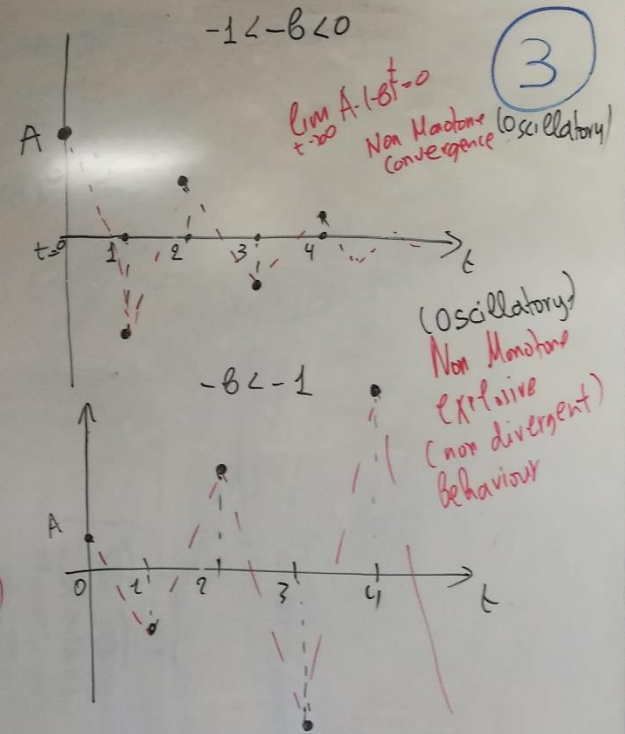 -1<-b<0
3
lim A·(-b)^t=0
t→∞
Non Monotone (Oscillatory)
Convergence
A
t=0 1 2 3 4 t
(Oscillatory)
Non Monotone
explosive
(non divergent)
Behaviour
-b<-1
A
0 1 2 3 4 t